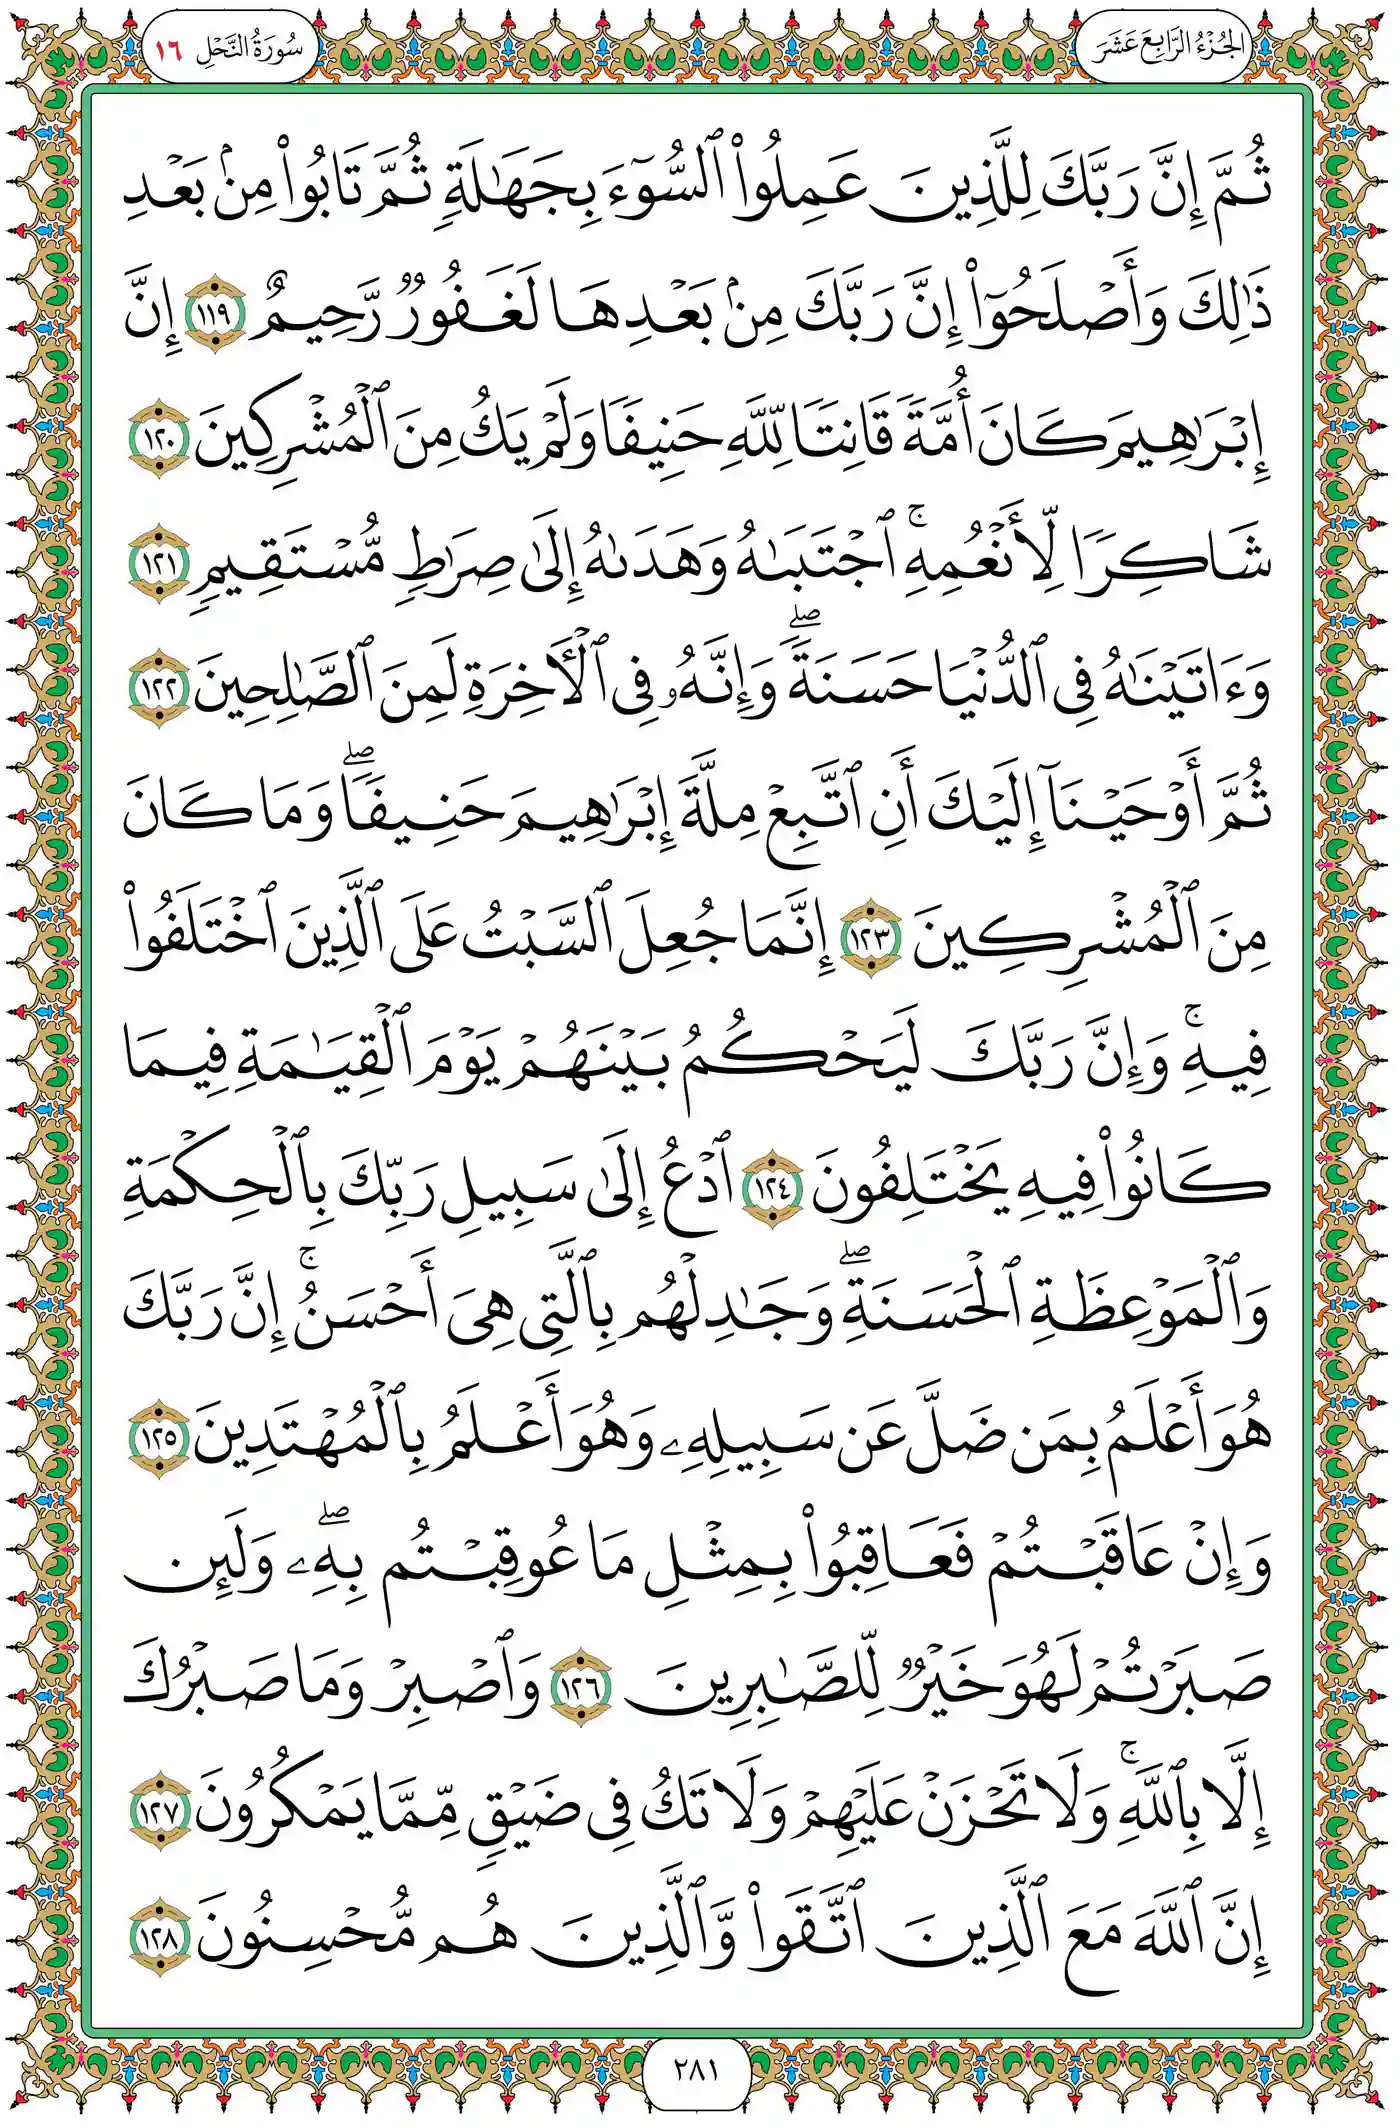 الجُزْءُ الرَّابِعَ عَشَرَ
سُورَةُ النَّحْلِ ١٦
ثُمَّ إِنَّ رَبَّكَ لِلَّذِينَ عَمِلُوا۟ ٱلسُّوٓءَ بِجَهَٰلَةٍۢ ثُمَّ تَابُوا۟ مِنۢ بَعْدِ
ذَٰلِكَ وَأَصْلَحُوٓا۟ إِنَّ رَبَّكَ مِنۢ بَعْدِهَا لَغَفُورٌۭ رَّحِيمٌ ١١٩ إِنَّ
إِبْرَٰهِيمَ كَانَ أُمَّةًۭ قَانِتًۭا لِّلَّهِ حَنِيفًۭا وَلَمْ يَكُ مِنَ ٱلْمُشْرِكِينَ ١٢٠
شَاكِرًۭا لِّأَنْعُمِهِ ۚ ٱجْتَبَىٰهُ وَهَدَىٰهُ إِلَىٰ صِرَٰطٍۢ مُّسْتَقِيمٍۢ ١٢١
وَءَاتَيْنَٰهُ فِى ٱلدُّنْيَا حَسَنَةًۭ ۖ وَإِنَّهُۥ فِى ٱلْءَاخِرَةِ لَمِنَ ٱلصَّٰلِحِينَ ١٢٢
ثُمَّ أَوْحَيْنَآ إِلَيْكَ أَنِ ٱتَّبِعْ مِلَّةَ إِبْرَٰهِيمَ حَنِيفًۭا ۖ وَمَا كَانَ
مِنَ ٱلْمُشْرِكِينَ ١٢٣ إِنَّمَا جُعِلَ ٱلسَّبْتُ عَلَى ٱلَّذِينَ ٱخْتَلَفُوا۟
فِيهِ ۚ وَإِنَّ رَبَّكَ لَيَحْكُمُ بَيْنَهُمْ يَوْمَ ٱلْقِيَٰمَةِ فِيمَا
كَانُوا۟ فِيهِ يَخْتَلِفُونَ ١٢٤ ٱدْعُ إِلَىٰ سَبِيلِ رَبِّكَ بِٱلْحِكْمَةِ
وَٱلْمَوْعِظَةِ ٱلْحَسَنَةِ ۖ وَجَٰدِلْهُم بِٱلَّتِى هِىَ أَحْسَنُ ۚ إِنَّ رَبَّكَ
هُوَ أَعْلَمُ بِمَن ضَلَّ عَن سَبِيلِهِۦ وَهُوَ أَعْلَمُ بِٱلْمُهْتَدِينَ ١٢٥
وَإِنْ عَاقَبْتُمْ فَعَاقِبُوا۟ بِمِثْلِ مَا عُوقِبْتُم بِهِۦ ۖ وَلَئِن
صَبَرْتُمْ لَهُوَ خَيْرٌۭ لِّلصَّٰبِرِينَ ١٢٦ وَٱصْبِرْ وَمَا صَبْرُكَ
إِلَّا بِٱللَّهِ ۚ وَلَا تَحْزَنْ عَلَيْهِمْ وَلَا تَكُ فِى ضَيْقٍۢ مِّمَّا يَمْكُرُونَ ١٢٧
إِنَّ ٱللَّهَ مَعَ ٱلَّذِينَ ٱتَّقَوا۟ وَّٱلَّذِينَ هُم مُّحْسِنُونَ ١٢٨
٢٨١